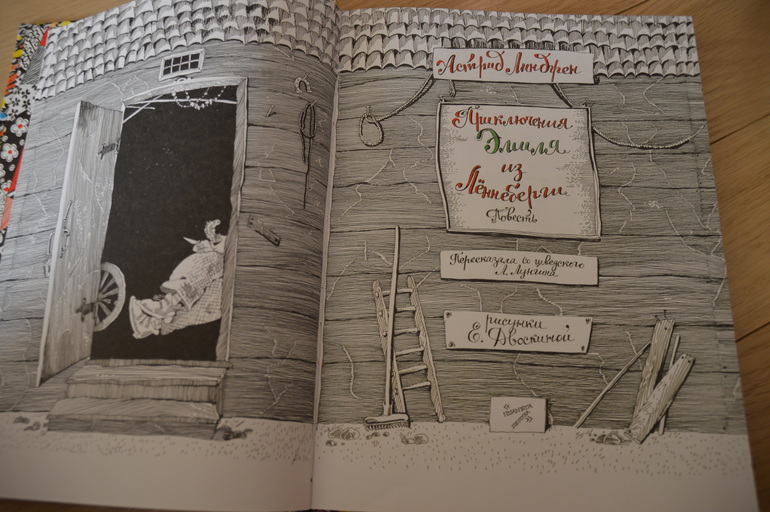 Астрид Линдгрен
Приключения
Эмиля
из
Лённеберги
Повесть
Пересказала со шведского
Л. Лунгина
рисунки
Е. Двоскиной